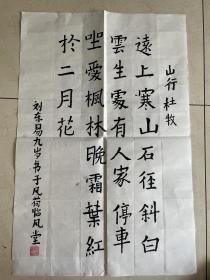 山行 杜牧
遠上寒山石徑斜白
雲生處有人家停車
坐愛楓林晚霜葉紅
於二月花
刘东易九岁书于凡荷临风堂